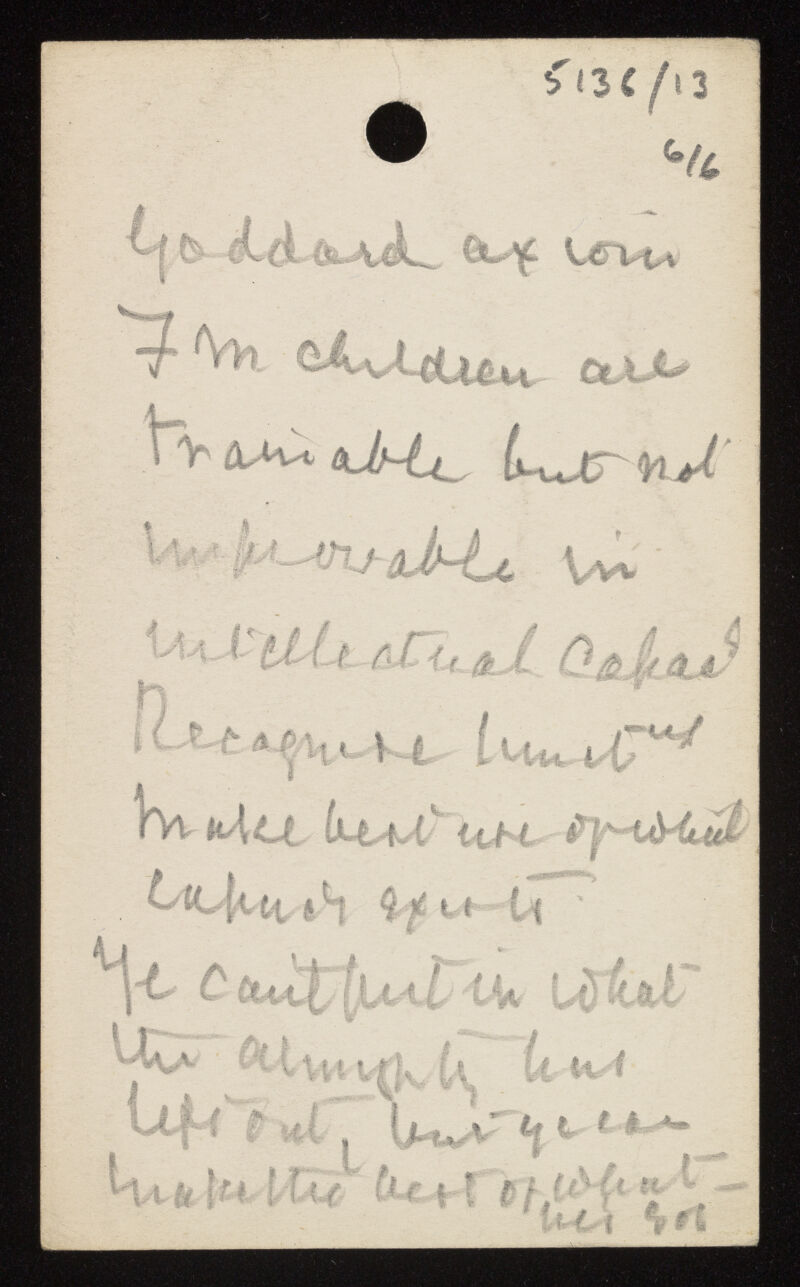 5136/13
6/6
Goddard axiom
F M children are
trainable but not
improvable in
intellectual Capacy
Recognise limitns
Make best use of what
capacity exists
Ye can't put in what
the almighty has
left out, but ye can
make the best of what
hes got